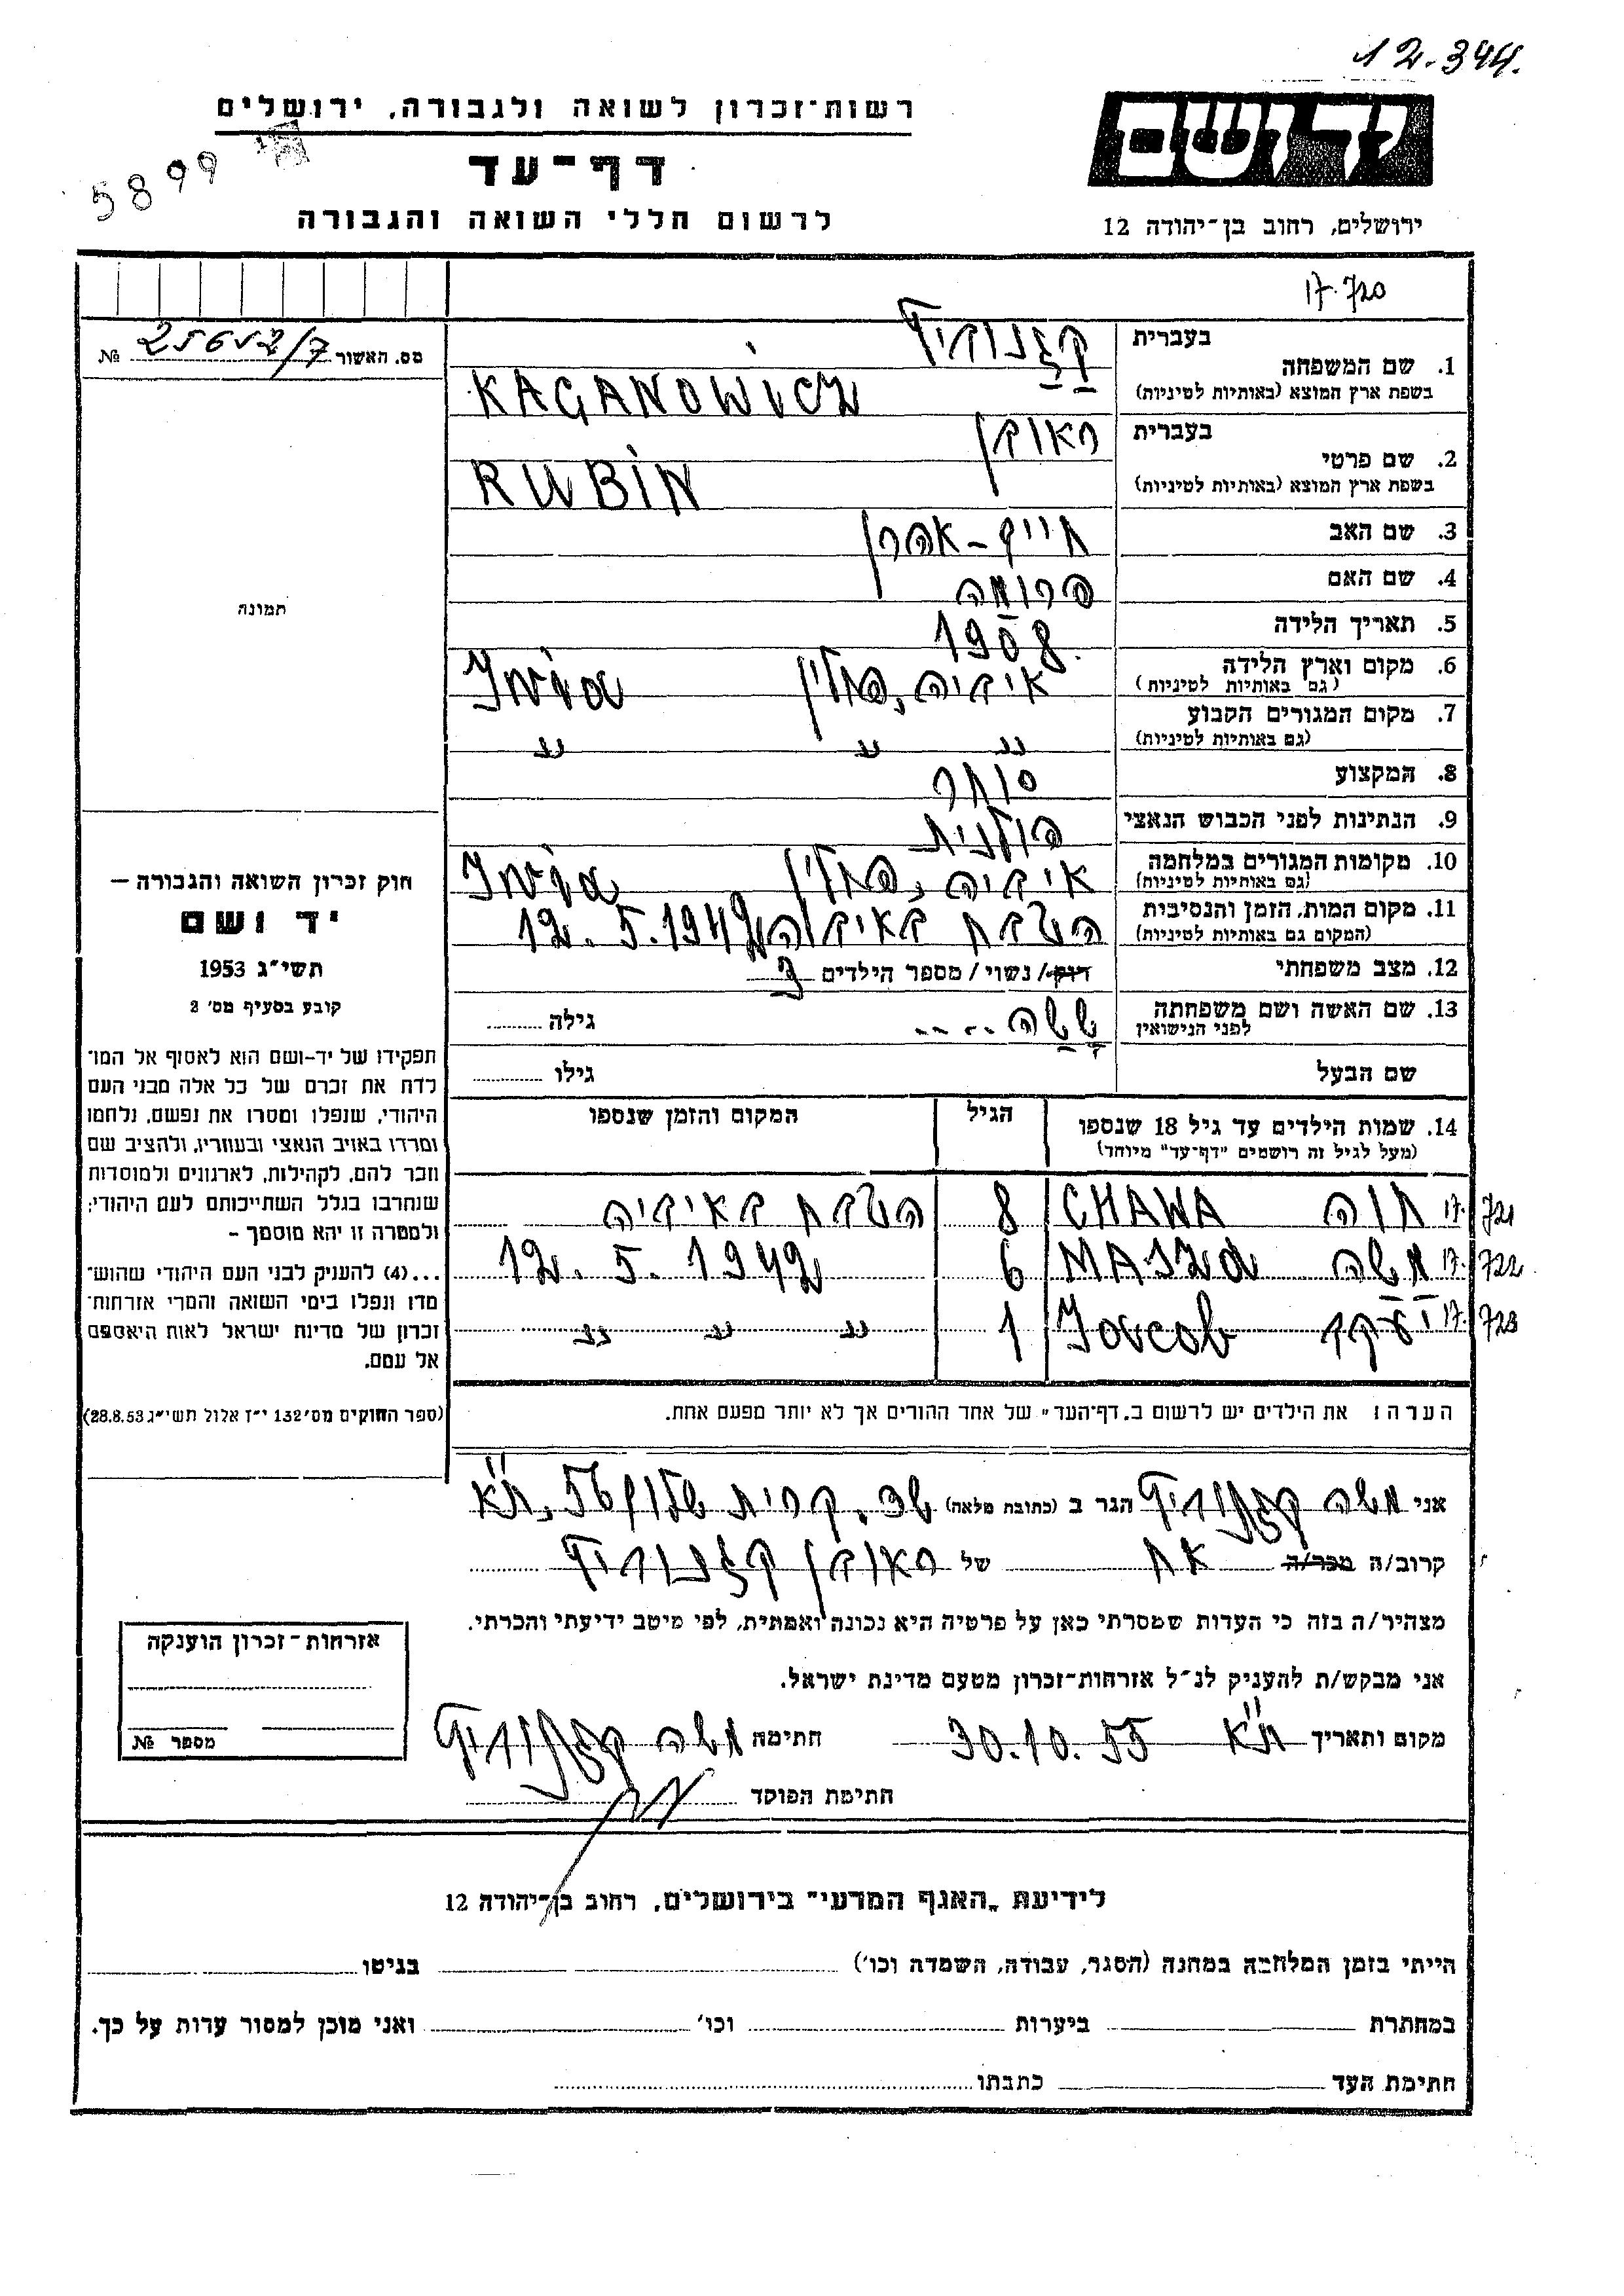 12.344.
רשות-זכרון לשואה ולגבורה, ירושלים
יד ושם
5899
דף-עד
לרשום חללי השואה והגבורה
ירושלים, רחוב בן-יהודה 12
17.720
מס. האשור 25652/7 №
בעברית קגנוביץ
1. שם המשפחה
בשפת ארץ המוצא (באותיות לטיניות) KAGANOWICZ
בעברית ראובן
2. שם פרטי
בשפת ארץ המוצא (באותיות לטיניות) RUBIN
3. שם האב חיים-אהרן
4. שם האם פרומה
5. תאריך הלידה 1908
6. מקום וארץ הלידה איביה, פולין Iwia
(גם באותיות לטיניות)
7. מקום המגורים הקבוע " " "
(גם באותיות לטיניות)
8. המקצוע סוחר
9. הנתינות לפני הכבוש הנאצי פולנית
10. מקומות המגורים במלחמה איביה, פולין Iwia
(גם באותיות לטיניות)
11. מקום המות, הזמן והנסיבות הטבח באיביה 12.5.1942
(המקום גם באותיות לטיניות)
12. מצב משפחתי רוק/ נשוי/ מספר הילדים 3
13. שם האשה ושם משפחתה
לפני הנישואין גילה
שם הבעל גילו
14. שמות הילדים עד גיל 18 שנספו הגיל המקום והזמן שנספו
(מעל לגיל זה רושמים "דף-עד" מיוחד)
17.721 חוה CHAWA 8 הטבח באיביה
17.722 משה MASZA 6 12.5.1942
17.723 יעקב Jacob 1 " " "
הערה: את הילדים יש לרשום ב„דף-העד" של אחד ההורים אך לא יותר מפעם אחת.
תמונה
חוק זכרון השואה והגבורה —
יד ושם
תשי"ג 1953
קובע בסעיף מס' 2
תפקידו של יד-ושם הוא לאסוף אל המו־
לדת את זכרם של כל אלה מבני העם
היהודי, שנפלו ומסרו את נפשם, נלחמו
ומרדו באויב הנאצי ובעוזריו, ולהציב שם
וזכר להם, לקהילות, לארגונים ולמוסדות
שנחרבו בגלל השתייכותם לעם היהודי;
ולמטרה זו יהא מוסמך –
...(4) להעניק לבני העם היהודי שהוש־
מדו ונפלו בימי השואה והמרי אזרחות־
זכרון של מדינת ישראל לאות היאספם
אל עמם.
(ספר החוקים מס' 132 י"ז אלול תשי"ג 28.8.53)
אני משה קגנוביץ הגר ב (כתובת מלאה) שכ. קרית שלום 56, ת"א
קרוב/ה מכר/ה אח של ראובן קגנוביץ
מצהיר/ה בזה כי העדות שמסרתי כאן על פרטיה היא נכונה ואמתית, לפי מיטב ידיעתי והכרתי.
אני מבקש/ת להעניק לנ"ל אזרחות-זכרון מטעם מדינת ישראל.
מקום ותאריך ת"א 30.10.55 חתימה משה קגנוביץ
חתימת הפוקד
אזרחות-זכרון הוענקה
מספר №
לידיעת „האגף המדעי" בירושלים, רחוב בן-יהודה 12
הייתי בזמן המלחמה במחנה (הסגר, עבודה, השמדה וכו') בגיטו
במחתרת ביערות וכו' ואני מוכן למסור עדות על כך.
חתימת העד כתבתו